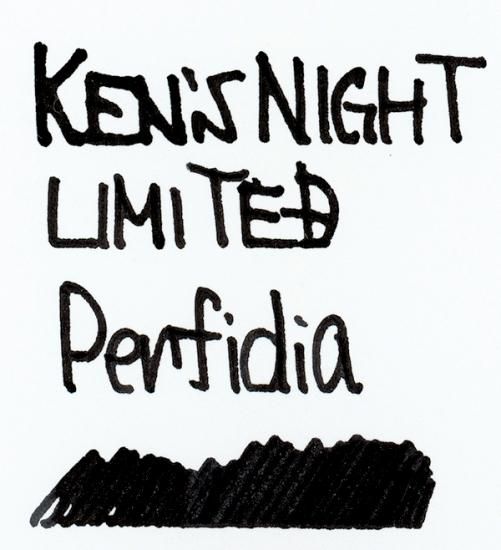 KEN'S NIGHT
LIMITED
Perfidia